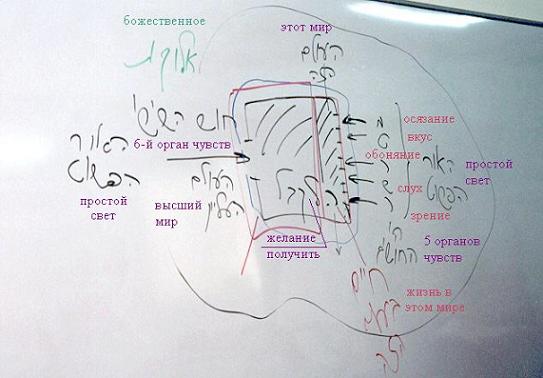 божественное
אלוקי
этот мир
העולם
הזה
חוש השישי
האור
הפשוט
6-й орган чувств
простой
свет
העולם
העליון
высший
мир
לקבל
желание
получить
осязание
вкус
обоняние
слух
зрение
האור
הפשוט
простой
свет
ה'
החושים
5 органов
чувств
חיים
בעולם
הזה
жизнь в
этом мире